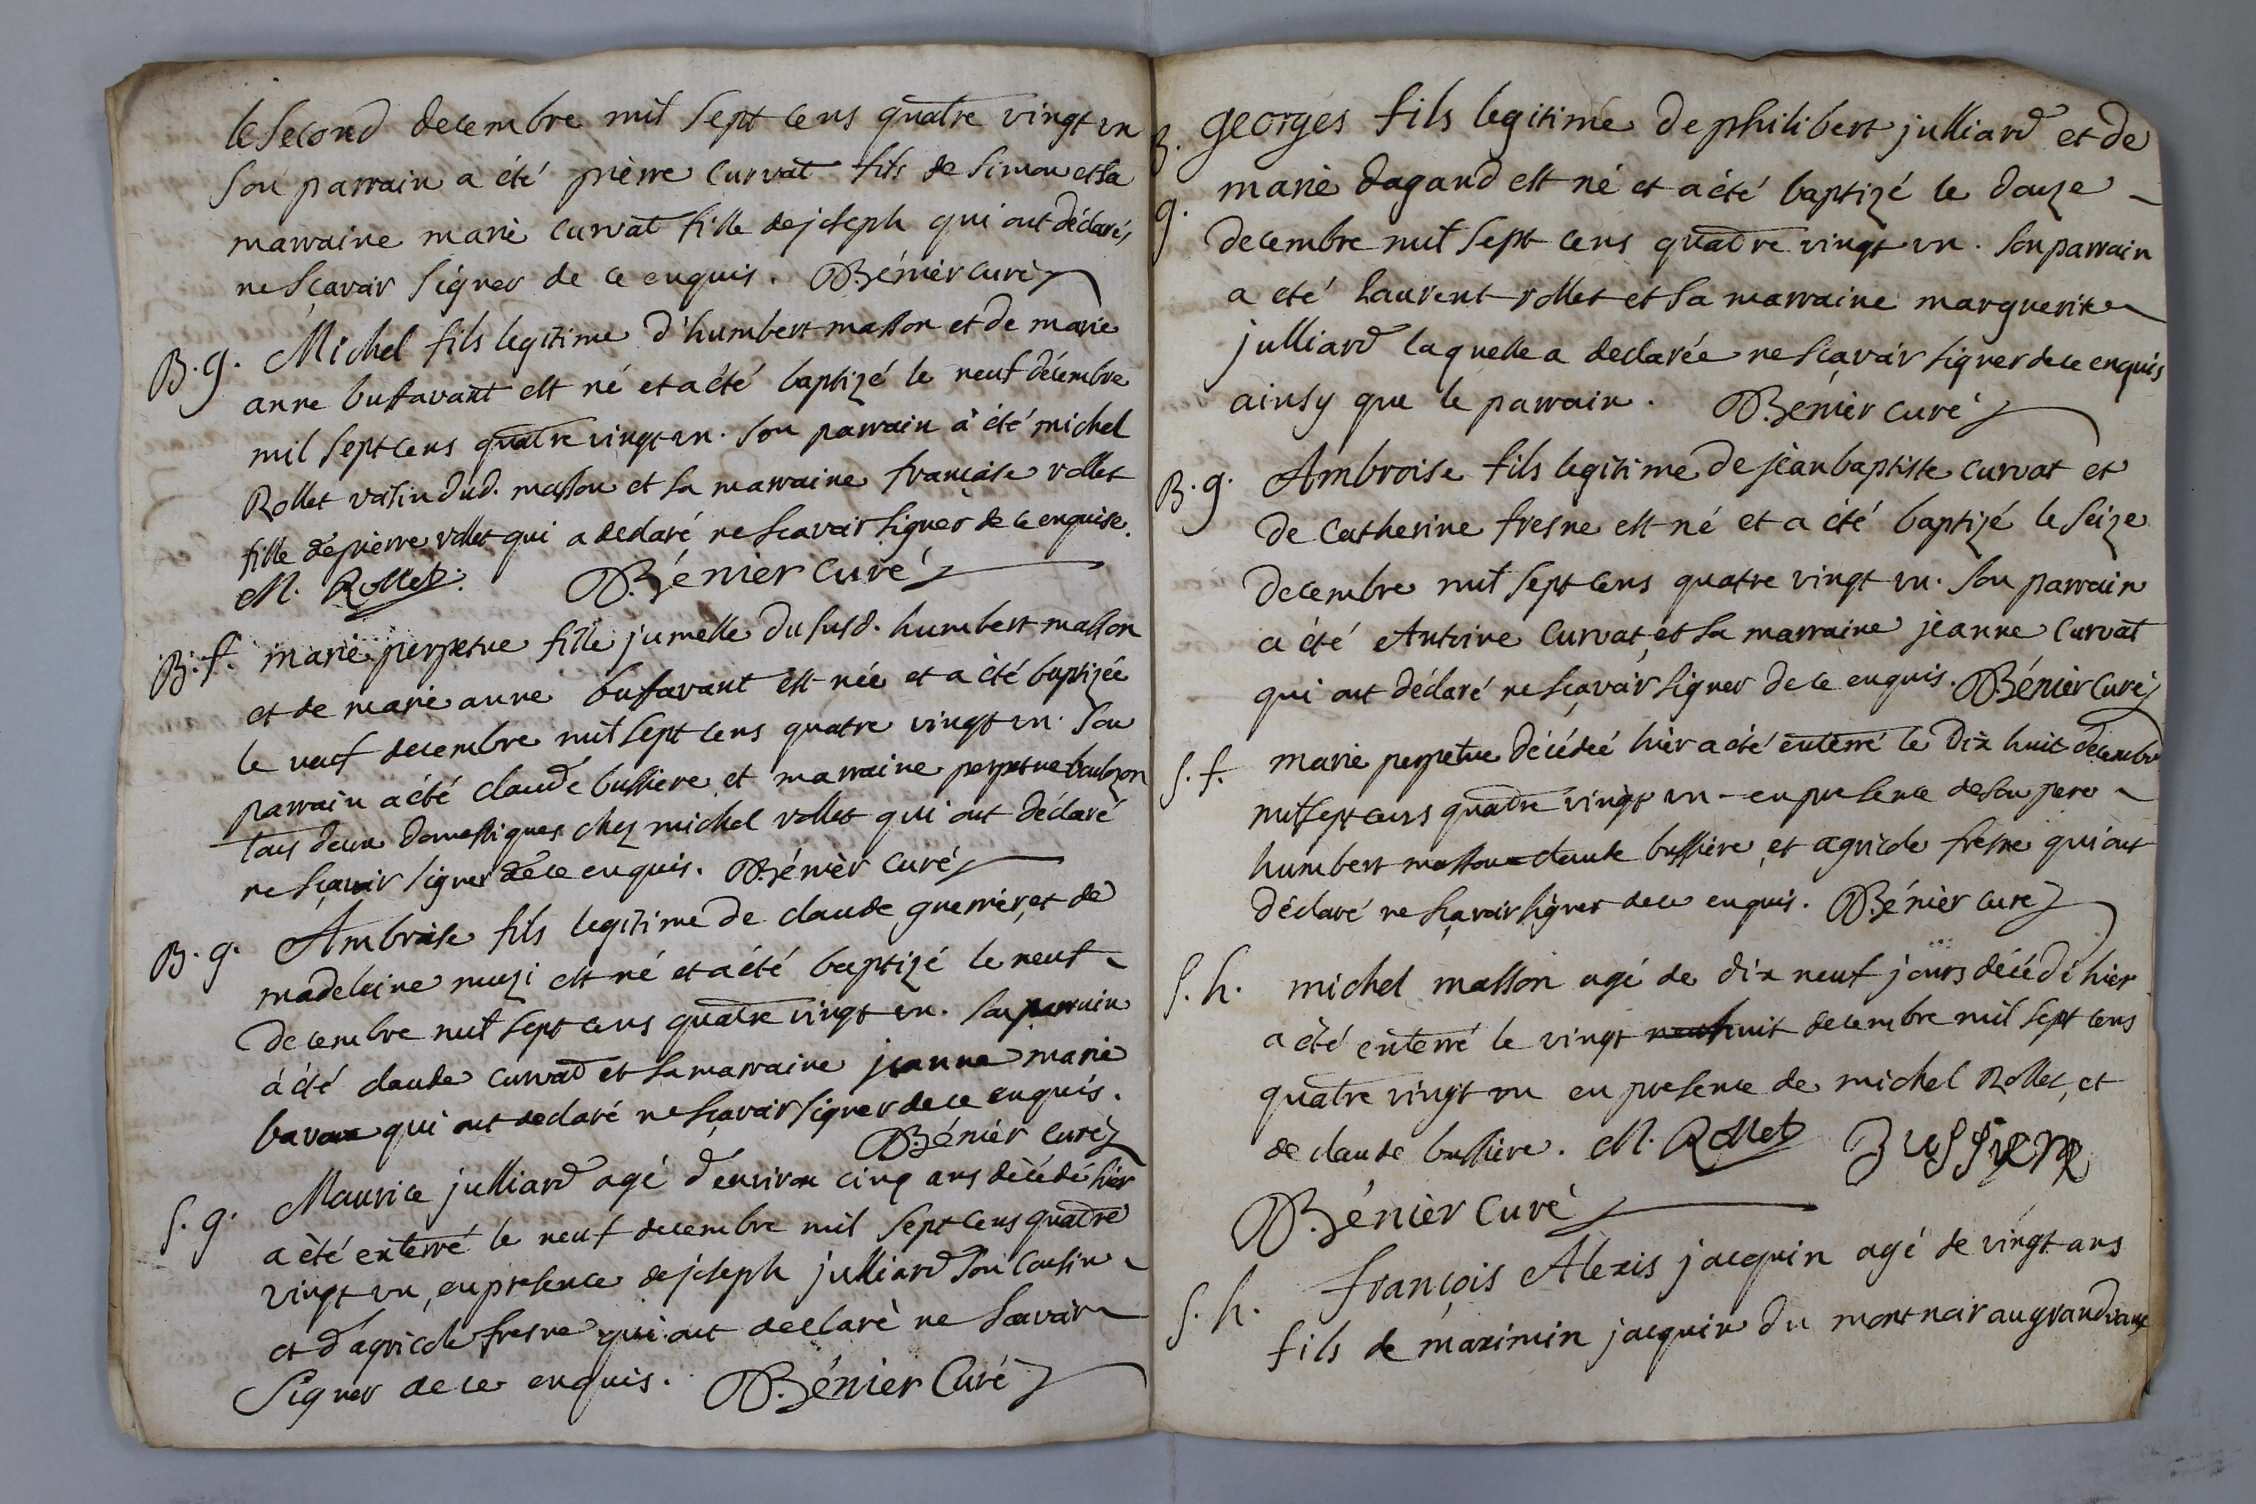 le second decembre mil sept cens quatre vingt un
son parrain a été pierre curvat fils de simon et sa
marraine marie curvat fille de joseph qui ont déclarés
ne sçavoir signer de ce enquis. B. Bénier curé
B. g. Michel fils legitime d'humbert masson et de marie
anne bussavant est né et a été baptizé le neuf décembre
mil sept cens quatre vingt un. son parrain à été michel
Rollet voisin dud. masson et sa marraine francaise rollet
fille de pierre rollet qui a declaré ne scavoir signer de ce enquise.
M. Rollet. B. Bénier curé
B. f. marie perpetue fille jumelle du susd. humbert masson
et de marie anne bussavant est née et a été baptizée
le neuf decembre mil sept cens quatre vingt un. son
parrain a été claude bussiere et marraine perpetue
tous deux domestiques chez michel rollet qui ont déclaré
ne sçavoir signer de ce enquis. B. Bénier curé
B. g. Ambroise fils legitime de claude guerrier, et de
madeleine muzi est né et a été baptizé le neuf
decembre mil sept cens quatre vingt un. son parrain
à été claude curvat et sa marraine jeanne marie
qui ont declaré ne sçavoir signer de ce enquis.
B. Bénier curé
S. g. Maurice julliard agé d'environ cinq ans décédé hier
a été enterré le neuf decembre mil sept cens quatre
vingt un, en presence de joseph julliard son cousin
et d'agricole fresne qui ont declaré ne scavoir
signer de ce enquis. B. Bénier Curé
B. georges fils legitime de philibert julliard et de
g. marie dagand est né et a été baptizé le douze
decembre mil sept cens quatre vingt un. son parrain
a eté Laurent rollet et sa marraine marguerite
julliard laquelle a declarée ne scavoir signer de ce enquis
ainsy que le parrain. B. Bénier curé
B. g. Ambroise fils legitime de jean baptiste curvat et
de catherine fresne est né et a été baptizé le seize
decembre mil sept cens quatre vingt un. son parrain
a été Antoine curvat, et sa marraine jeanne curvat
qui ont déclaré ne sçavoir signer de ce enquis. B. Bénier Curé
s. f. marie perpetue décédée hier a été enterré le dix huit decembre
mil sept cens quatre vingt un - en presence de son pere
humbert masson claude bussiere, et agricole fresne qui ont
déclaré ne sçavoir signer de ce enquis. B. Bénier curé
s. h. michel masson agé de dix neuf jours décédé hier
a été enterré le vingt huit decembre mil sept cens
quatre vingt un en presence de michel Rollet, et
de claude bussiere. M. Rollet Bussiere
B. Bénier curé
s. h. françois Alexis jacquin agé de vingt ans
fils de maximin jacquin du mont noir au grandvaux